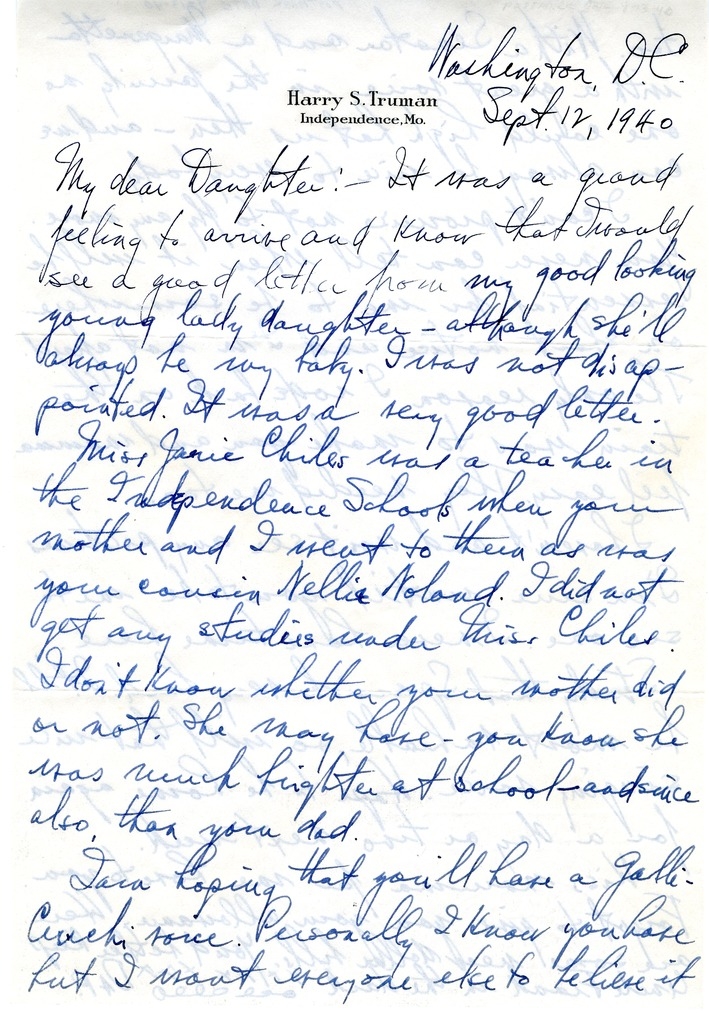 Washington, D.C.
Harry S. Truman
Independence, Mo.
Sept. 12, 1940
My dear Daughter:- It was a grand
feeling to arrive and know that I would
see a good letter from my good looking
young lady daughter - although she'll
always be my baby. I was not disap-
pointed. It was a very good letter.
Miss Janie Chiles was a teacher in
the Independence Schools when your
mother and I went to them as was
your cousin Nellie Noland. I did not
get any studies under Miss Chiles.
I don't know whether your mother did
or not. She may have - you know she
was much brighter at school - and since
also, than your dad.
I am hoping that you'll have a Galli-
Curchi voice. Personally I know you have
but I want everyone else to believe it